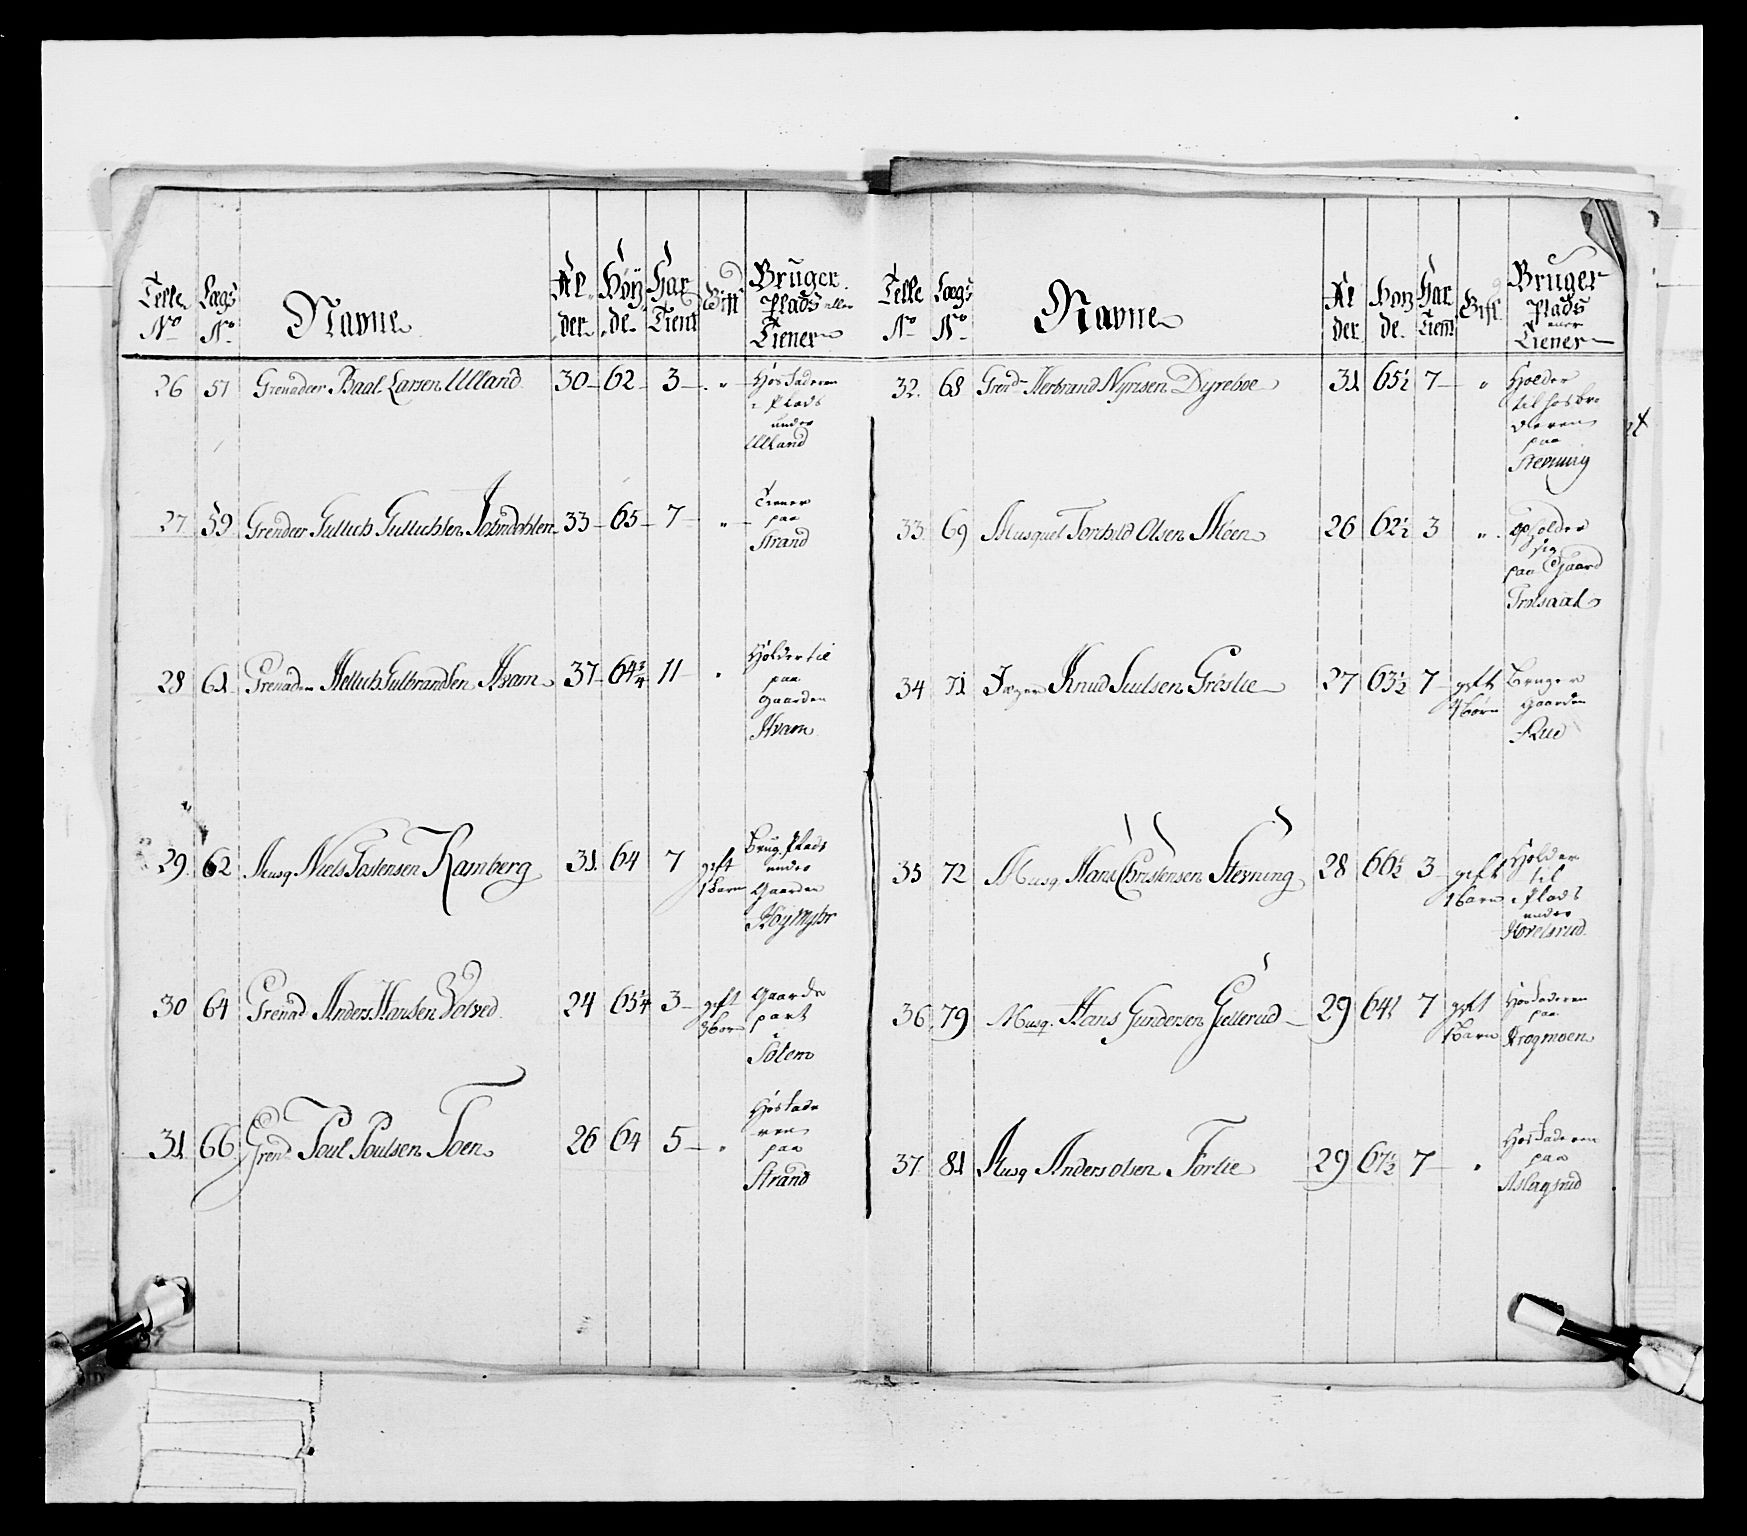 Telle No Lægs No Navne Al der Høy de Har Tient Gift Bruger Plads eller Tiener
26 57 Grenadeer Baal Larsen Ulland 30 62 3 " Hos Faderen
i Plads
under
Ulland
27 59 Grendeer Gullich Gullichsen 33 65 7 " Tiener
paa
Strand
28 61 Grenadeer Hellich Gulbrandsen Hvam 37 64¾ 11 " Holder til
paa
Gaarden
Hvam
29 62 Musq Niels Tostensen Ramberg 31 64 7 gift 1 Barn Brug. Plads
under
Gaarden
30 64 Grenad Anders Hansen 24 65¼ 3 gift Gaarde
part
i
Solem
31 66 Grend Poul Poulsen Toen 26 64 5 " Hos Fade
ren
paa
Strand
Telle No Lægs No Navne Al der Høy de Har Tient Gift Bruger Plads eller Tiener
32 68 Grend Herbrand Dyreboe 31 65½ 7 " Holder
til hos Bro
deren
paa
Stevning
33 69 Musquet Torchild Olsen Moen 26 62½ 3 " Opholder
sig
paa Gaard
34 71 Jæger Knud Juulsen Grøslie 27 63½ 7 gift Børn Bruger
Gaarden
Rue
35 72 Musq. Hans Christensen Stevning 28 66½ 3 gift 1 Barn Holder
til
i Plads
under
Hvelsrud
36 79 Musq. Hans Gundersen Gullerud 29 64½ 7 gift 1 Barn Hos Faderen
paa
Krogmoen
37 81 Musq Anders Olsen Forlie 29 67½ 7 " Hos Faderen
paa
Aslagsrud